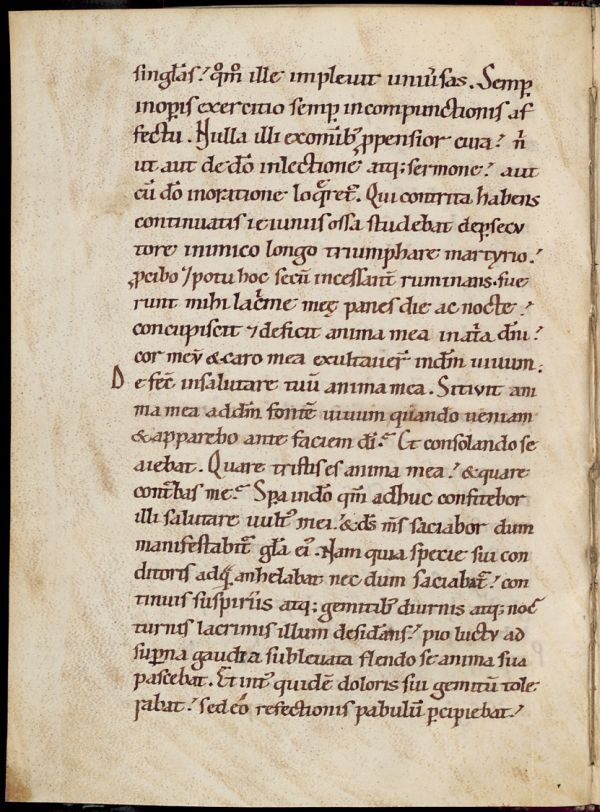 singl̄as? qm̄ ille impleuit uniūsas. Semp̱
inopis exercitio semp̱ incompunctionis af
fectu. Nulla illi exomīb; ꝓpensior cura? n̄
ut aut de dō inlectione atq; sermone? aut
cū dō inoratione loq̄ret̄. Qui contrita habens
continuatis ieiuniis ossa studebat dep̱secu
tore inimico longo triumphare martyrio?
ꝓ cibo ⁊ potu hoc secū incessant̄ ruminans. fue
runt mihi lac̄me meę panes die ac nocte?
concupiscit ⁊ deficit anima mea inat̄a dn̄i?
cor meū & caro mea exultauer̄ indm̄ uiuum.
D e fec̄ insalutare tuū anima mea. Sitiuit ani
ma mea addm̄ fontē uiuum quando ueniam
& apparebo ante faciem dī? Et consolando se
aiebat. Quare tristis es anima mea? & quare
cont̄bas me? Sp̱a indo qm̄ adhuc confitebor
illi salutare uult᷒ mei? & ds̄ ms̄ saciabor dum
manifestabit̄ gl̄a ei᷒. Nam quia specie sui con
ditoris adq̄ anhelabat nec dum saciabat̄? con
tinuis suspiriis atq; gemitib; diurnis atq; noc̄
turnis lacrimis illum desid̄ans? pio luctu ad
sup̱na gaudia subleuata flendo se anima sua
pascebat. Et int̄ quidē doloris sui gemitū tole
rabat? sed eō refectionis pabulū p̱cipiebat?